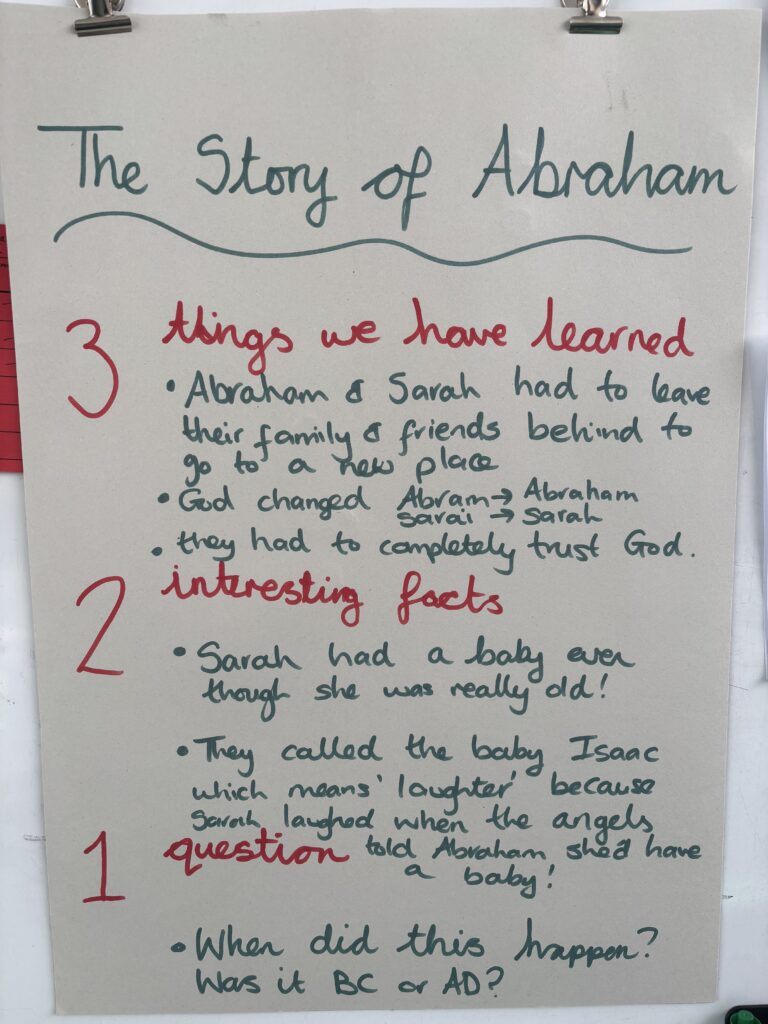 The Story of Abraham
3 things we have learned
• Abraham & Sarah had to leave
their family & friends behind to
go to a new place
• God changed Abram → Abraham
Sarai → Sarah
• they had to completely trust God.
2 interesting facts
• Sarah had a baby even
though she was really old!
• They called the baby Isaac
which means 'laughter' because
Sarah laughed when the angels
told Abraham she'd have
a baby!
1 question
• When did this happen?
Was it BC or AD?